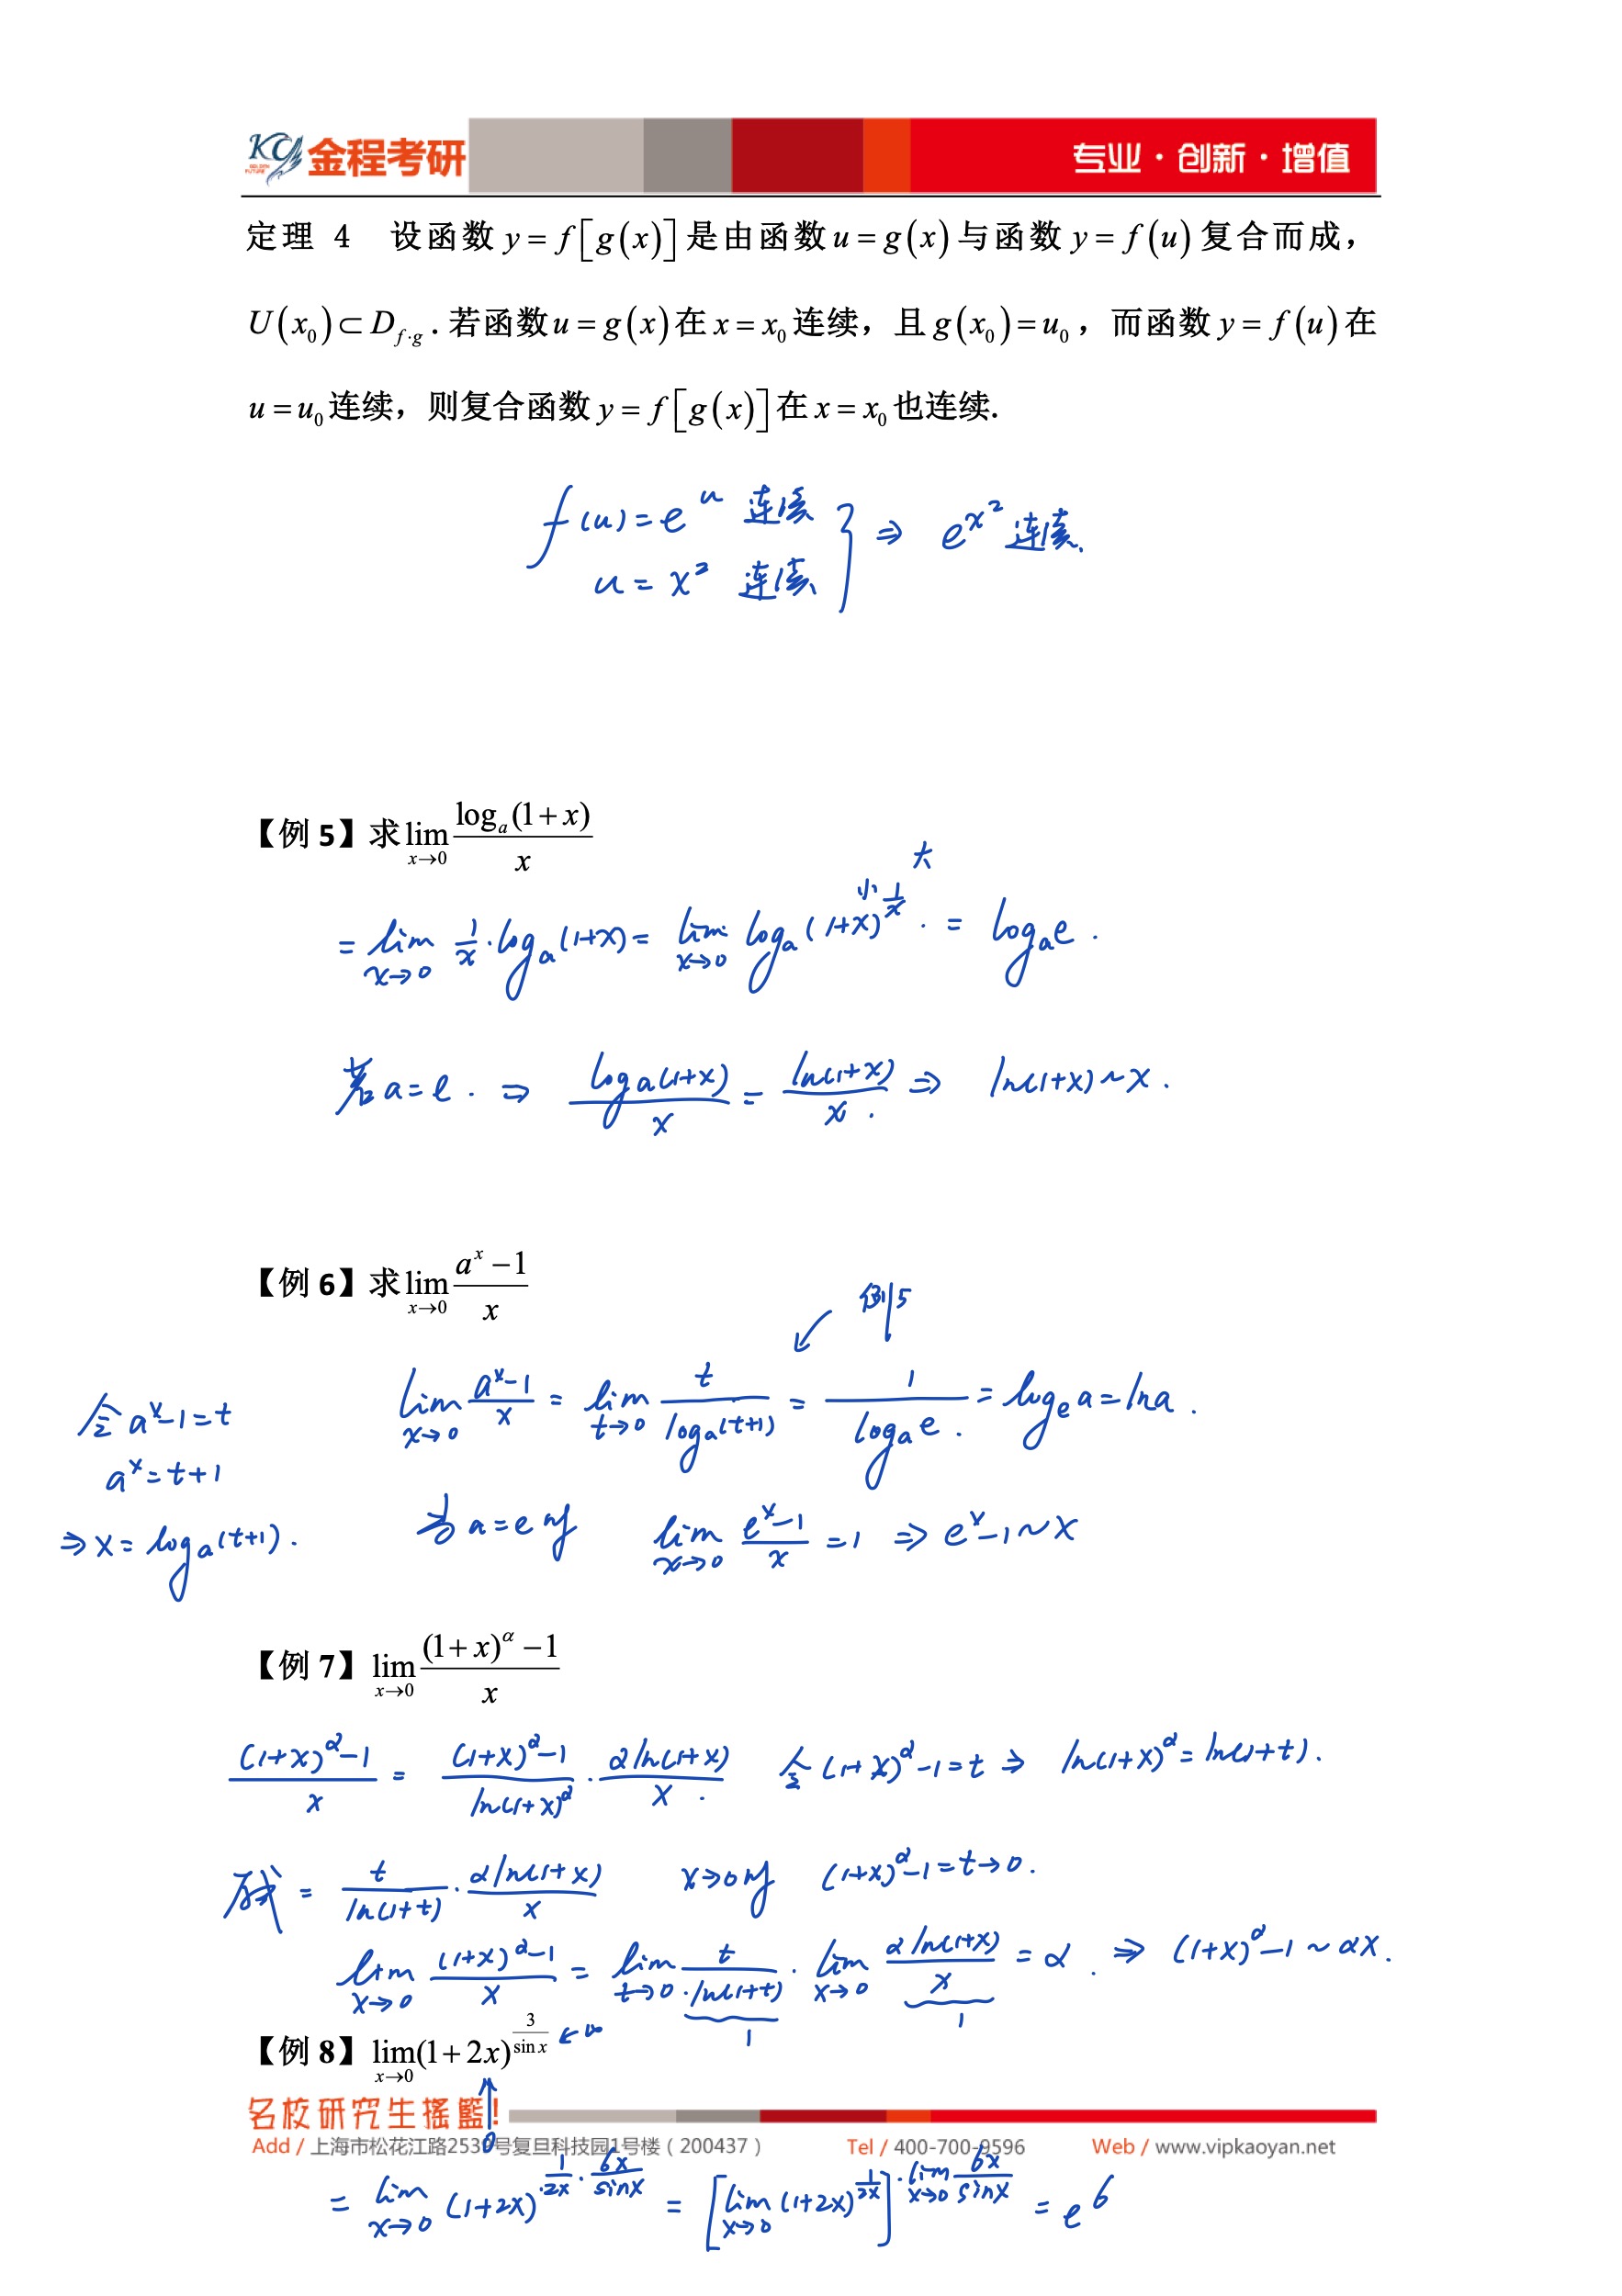 KC GOLDEN FUTURE 金程考研 专业·创新·增值
定理 4 设函数 y = f[g(x)] 是由函数 u = g(x) 与函数 y = f(u) 复合而成，
U(x₀) ⊂ D_{f·g}. 若函数 u = g(x) 在 x = x₀ 连续，且 g(x₀) = u₀，而函数 y = f(u) 在
u = u₀ 连续，则复合函数 y = f[g(x)] 在 x = x₀ 也连续.
f(u) = e^u 连续
u = x² 连续
} ⇒ e^{x²} 连续.
【例 5】求 lim_{x→0} log_a(1+x)/x
小 大
= lim_{x→0} 1/x · log_a(1+x) = lim_{x→0} log_a(1+x)^{1/x} . = log_a e .
若 a = e . ⇒ log_a(1+x)/x = ln(1+x)/x . ⇒ ln(1+x) ~ x .
【例 6】求 lim_{x→0} (a^x − 1)/x
↙ 例5
令 a^x − 1 = t
a^x = t + 1
⇒ x = log_a(t+1) .
lim_{x→0} (a^x − 1)/x = lim_{t→0} t/log_a(t+1) = 1/log_a e . = log_e a = ln a .
当 a = e 时 lim_{x→0} (e^x − 1)/x = 1 ⇒ e^x − 1 ~ x
【例 7】 lim_{x→0} ((1+x)^α − 1)/x
((1+x)^α − 1)/x = ((1+x)^α − 1)/ln(1+x)^α · α ln(1+x)/x . 令 (1+x)^α − 1 = t ⇒ ln(1+x)^α = ln(1+t) .
原式 = t/ln(1+t) · α ln(1+x)/x x→0时 (1+x)^α − 1 = t → 0 .
lim_{x→0} ((1+x)^α − 1)/x = lim_{t→0} t/ln(1+t) · lim_{x→0} α ln(1+x)/x = α . ⇒ (1+x)^α − 1 ~ αx .
1 1
【例 8】 lim_{x→0} (1+2x)^{3/sin x} ← ∞
↑
0
名校研究生摇篮!
Add / 上海市松花江路2539号复旦科技园1号楼（200437） Tel / 400-700-9596 Web / www.vipkaoyan.net
= lim_{x→0} (1+2x)^{1/2x · 6x/sin x} = [lim_{x→0} (1+2x)^{1/2x}]^{· lim_{x→0} 6x/sin x} = e^6